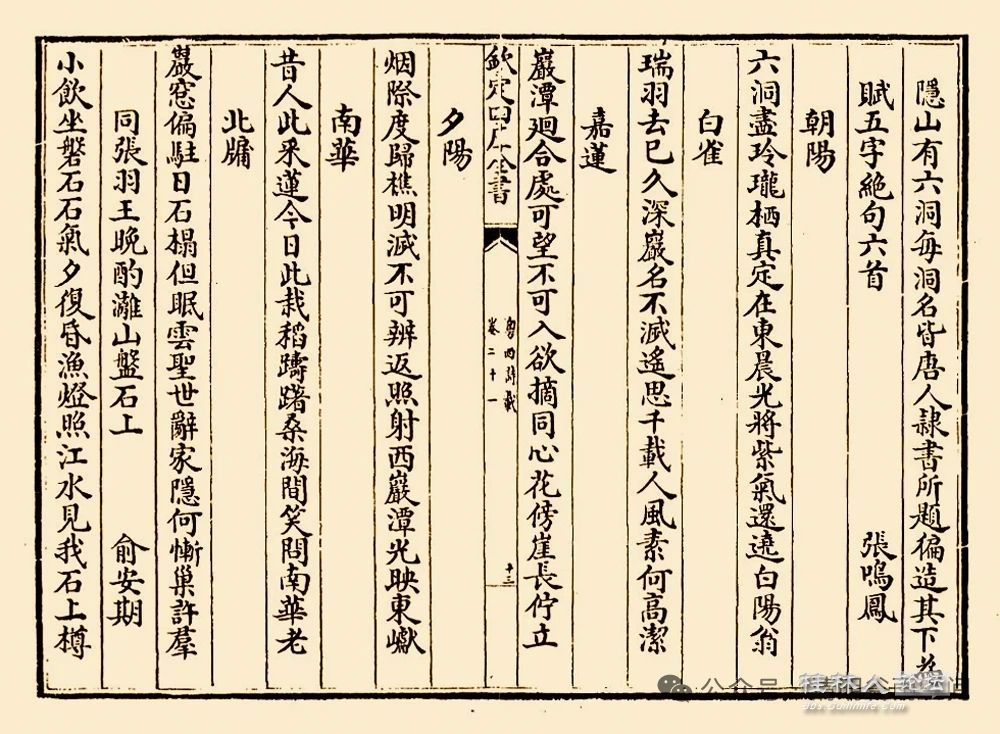 隱山有六洞每洞名皆唐人隷書所題徧造其下各
賦五字絶句六首 張鳴鳳
朝陽
六洞盡玲瓏栖真定在東晨光將紫氣還遶白陽翁
白雀
瑞羽去已久深巖名不滅遙思千載人風素何高潔
嘉蓮
巖潭廻合處可望不可入欲摘同心花傍崖長佇立
欽定四庫全書
粤西詩載
卷二十一
十三
夕陽
烟際度歸樵明滅不可辨返照射西巖潭光映東巘
南華
昔人此采蓮今日此栽稻躊躇桑海間笑問南華老
北牖
巖窓偏駐日石榻但眠雲聖世辭家隱何慚巢許羣
同張羽王晩酌灕山盤石上 俞安期
小飲坐磐石石氣夕復昏漁燈照江水見我石上樽
公众号
桂林人论坛
bbs.Guilinlife.com